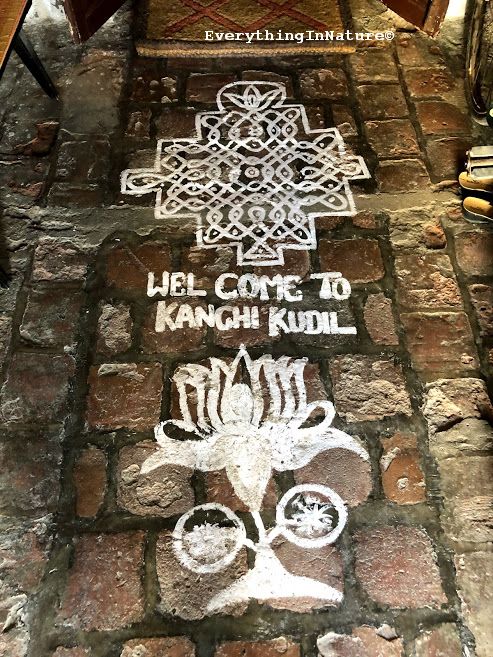 EverythingInNature©
WEL COME TO
KANCHI KUDIL